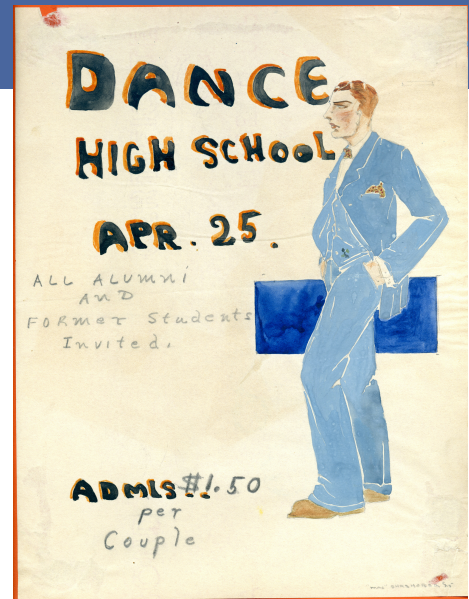 DANCE
HIGH SCHOOL
APR. 25.
ALL ALUMNI
AND
FORMER Students
Invited.
ADMIS.. $1.50
per
Couple